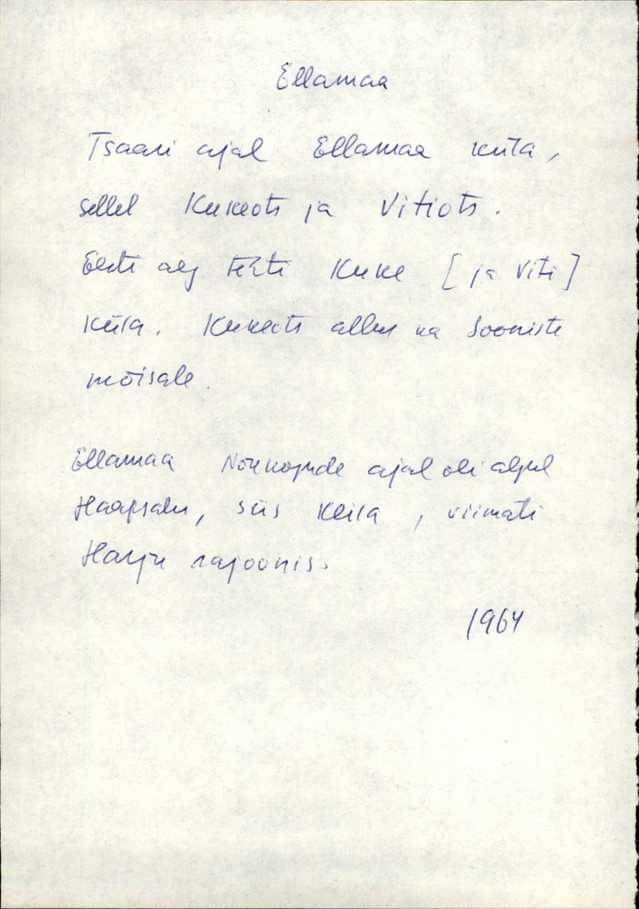 Ellamaa
Tsaari ajal Ellamaa küla,
sellel Kukeots ja Vitiots.
Eesti aeg tehti Kuke [ja Viti]
küla. Kukeots allus ka Sooniste
mõisale.
Ellamaa Nõukogude ajal oli algul
Haapsalu, siis Keila, viimati
Harju rajoonis.
1964